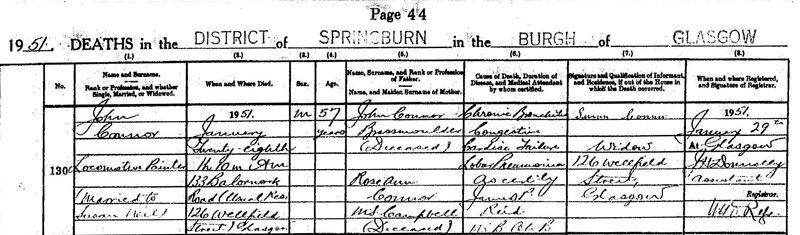 Page 44
1951. DEATHS in the DISTRICT of SPRINGBURN in the BURGH of GLASGOW
(1.) (2.) (3.) (4.) (5.) (6.) (7.) (8.)
No.
Name and Surname.
Rank or Profession, and whether
Single, Married, or Widowed.
When and Where Died.
Sex.
Age.
Name, Surname, and Rank or Profession
of Father.
Name, and Maiden Surname of Mother.
Cause of Death, Duration of
Disease, and Medical Attendant
by whom certified.
Signature and Qualification of Informant,
and Residence, if out of the House in
which the Death occurred.
When and where Registered,
and Signature of Registrar.
130
John
Connor
Locomotive Painter
Married to
Susan
1951.
January
Twenty-eighth
1h. 10m. A.M.
133 Balornock
Road (Usual Res
126 Wellfield
Street) Glasgow
M
57
years
John Connor
Brassmoulder
(Deceased)
Rose Ann
Connor
M.S. Campbell
(Deceased)
Chronic Bronchitis
Congestive
Cardiac Failure
Lobar Pneumonia
As cert by
James P.
Reid
M.B. Ch.B
Susan Connor
Widow
126 Wellfield
Street,
Glasgow
1951.
January 29th
At Glasgow
Donnolly
Assistant
Registrar.